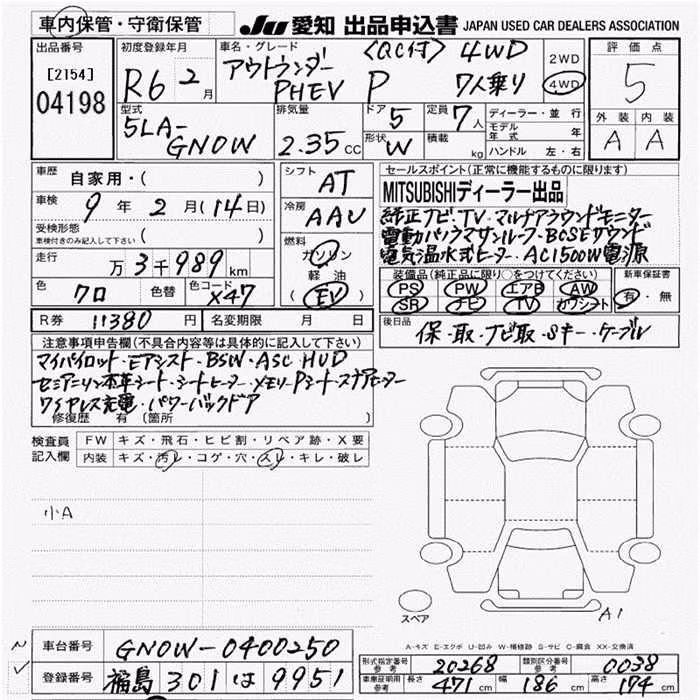 車内保管・守衛保管 JU 愛知 出品申込書 JAPAN USED CAR DEALERS ASSOCIATION
出品番号 初度登録年月 車名・グレード 〈QC付〉 4WD 2WD 評価点
[2154] R6 2月 アウトランダー PHEV P 7人乗り 4WD 5
04198 型式 排気量 ドア 5 定員 7人 ディーラー・並行 外装 内装
5LA-GN0W 2.35 CC 形状 W 積載 kg モデル年式 年 A A
ハンドル 左・右
車歴 自家用・( ) シフト AT セールスポイント(正常に機能するものに限ります)
車検 9年2月(14日) 冷房 AAC MITSUBISHIディーラー出品
受検形態 純正ナビ・TV・マルチアラウンドモニター
車検付きのみ記入して下さい ( ) 燃料 電動パノラマサンルーフ・BOSEサウンド
走行 万3千989km ガソリン 電気温水式ヒーター・AC1500W電源
軽油 装備品(純正品に限り○をつけてください) 新車保証書
色 クロ 色替 色コード X47 (EV) PS PW エアB AW 有・無
SR ナビ TV カワシート
R券 11380円 名変期限 月 日 後日品 保・取・ナビ取・Sキー・ケーブル
注意事項申告欄(不具合内容等は具体的に記入して下さい)
マイパイロット・Eアシスト・BSW・ASC・HUD
セミアニリン本革シート・シートヒーター・メモリーPシート・ステアヒーター
ワイヤレス充電・パワーバックドア
修復歴 有 (箇所 )
検査員記入欄 FW キズ・飛石・ヒビ割・リペア跡・X要
内装 キズ・汚レ・コゲ・穴・スレ・キレ・破レ
小A
スペア A1
A-キズ E-エクボ U-凹み W-補修跡 S-サビ C-腐食 XX-交換済
車台番号 GN0W-0400250 形式指定番号 参考 20268 類別区分番号 参考 0038
登録番号 福島 301 は 9951 車庫証明用 参考 長さ 471cm 幅 186cm 高さ 174cm